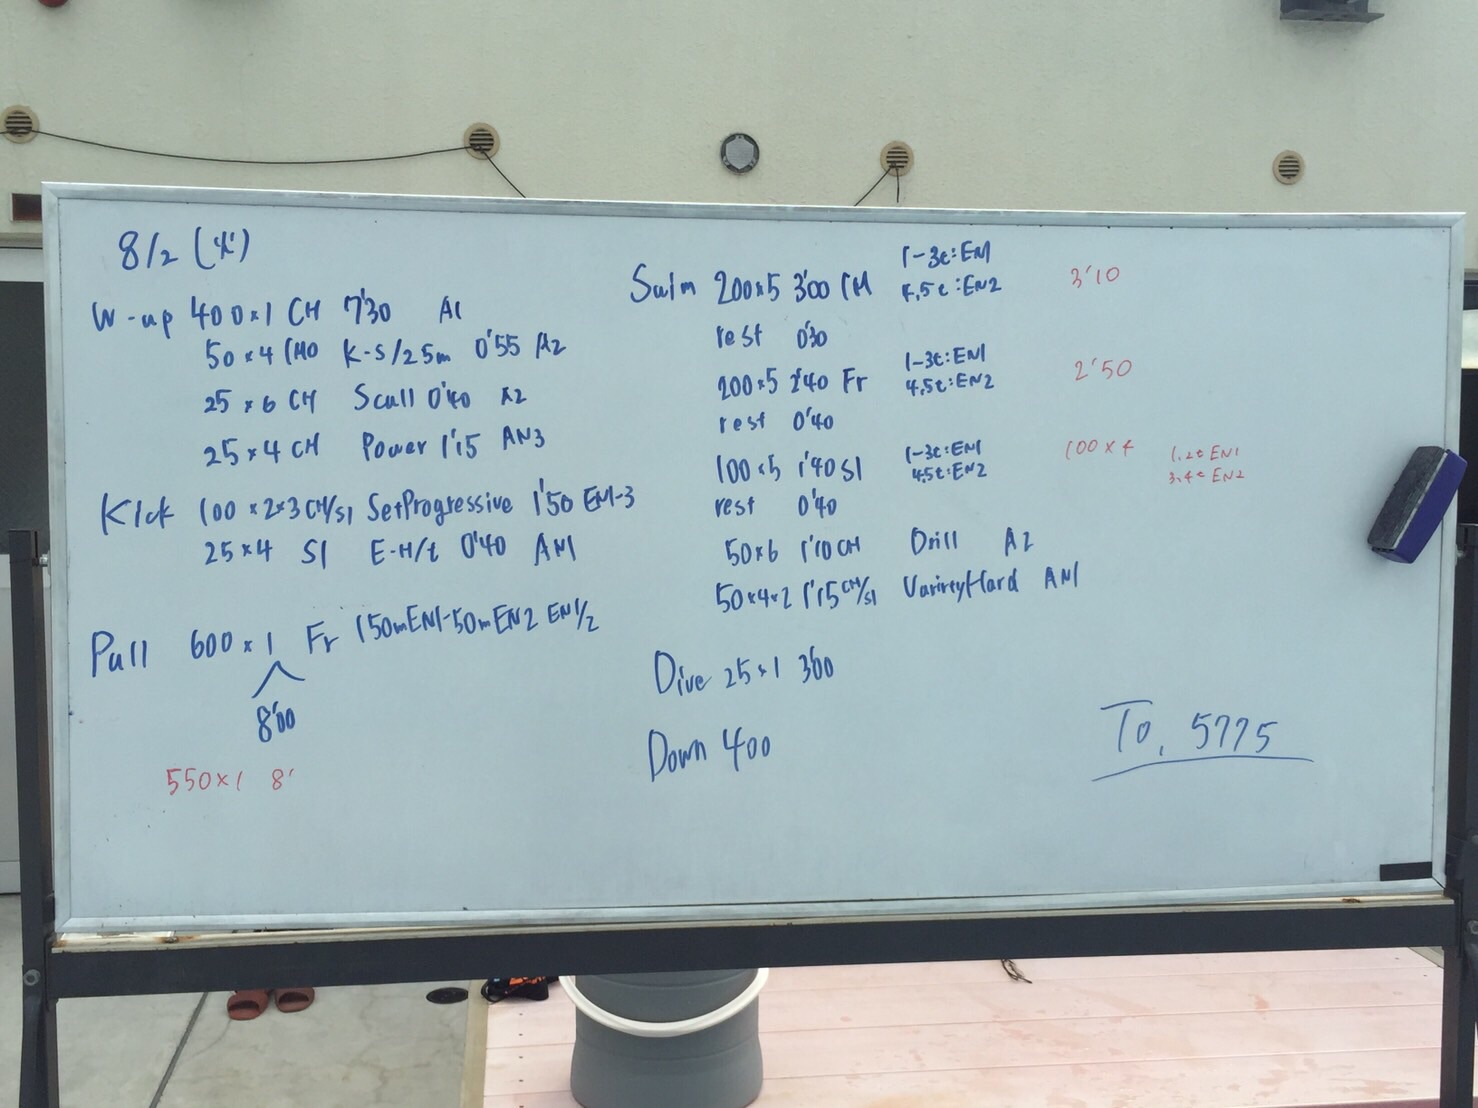 8/2 (火)
W-up 400×1 CH 7'30 A1
50×4 IMO K-S/25m 0'55 A2
25×6 CH Scull 0'40 A2
25×4 CH Power 1'15 AN3
Kick 100×2×3 CH/S1 SetProgressive 1'50 EN1-3
25×4 S1 E-H/t 0'40 AN1
Pull 600×1 Fr 150mEN1-50mEN2 EN1/2
8'00
550×1 8'
Swim 200×5 3'00 IM 1-3t:EN1 3'10
4,5t:EN2
rest 0'30
200×5 2'40 Fr 1-3t:EN1 2'50
4,5t:EN2
rest 0'40
100×5 1'40 S1 1-3t:EN1 100×4 1,2t EN1
4,5t:EN2 3,4t EN2
rest 0'40
50×6 1'10 CH Drill A2
50×4×2 1'15 CH/S1 VarietyHard AN1
Dive 25×1 3'00
Down 400
To, 5775